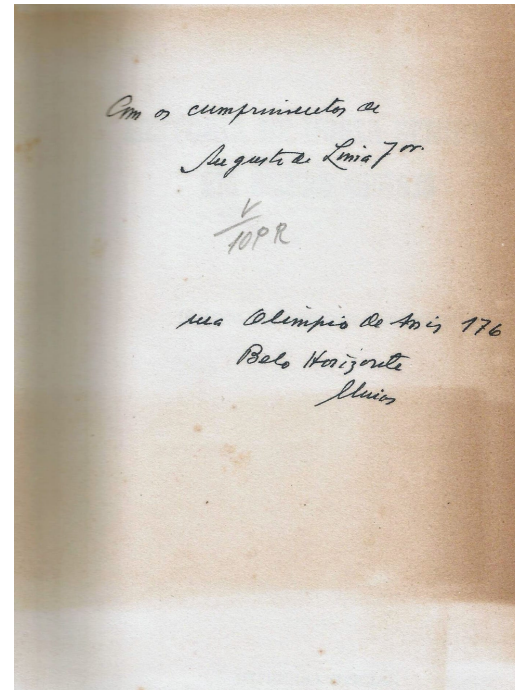 Com os cumprimentos de
Augusto de Lima Jor.
V
10PR
rua Olimpio de Assis 176
Belo Horizonte
Minas